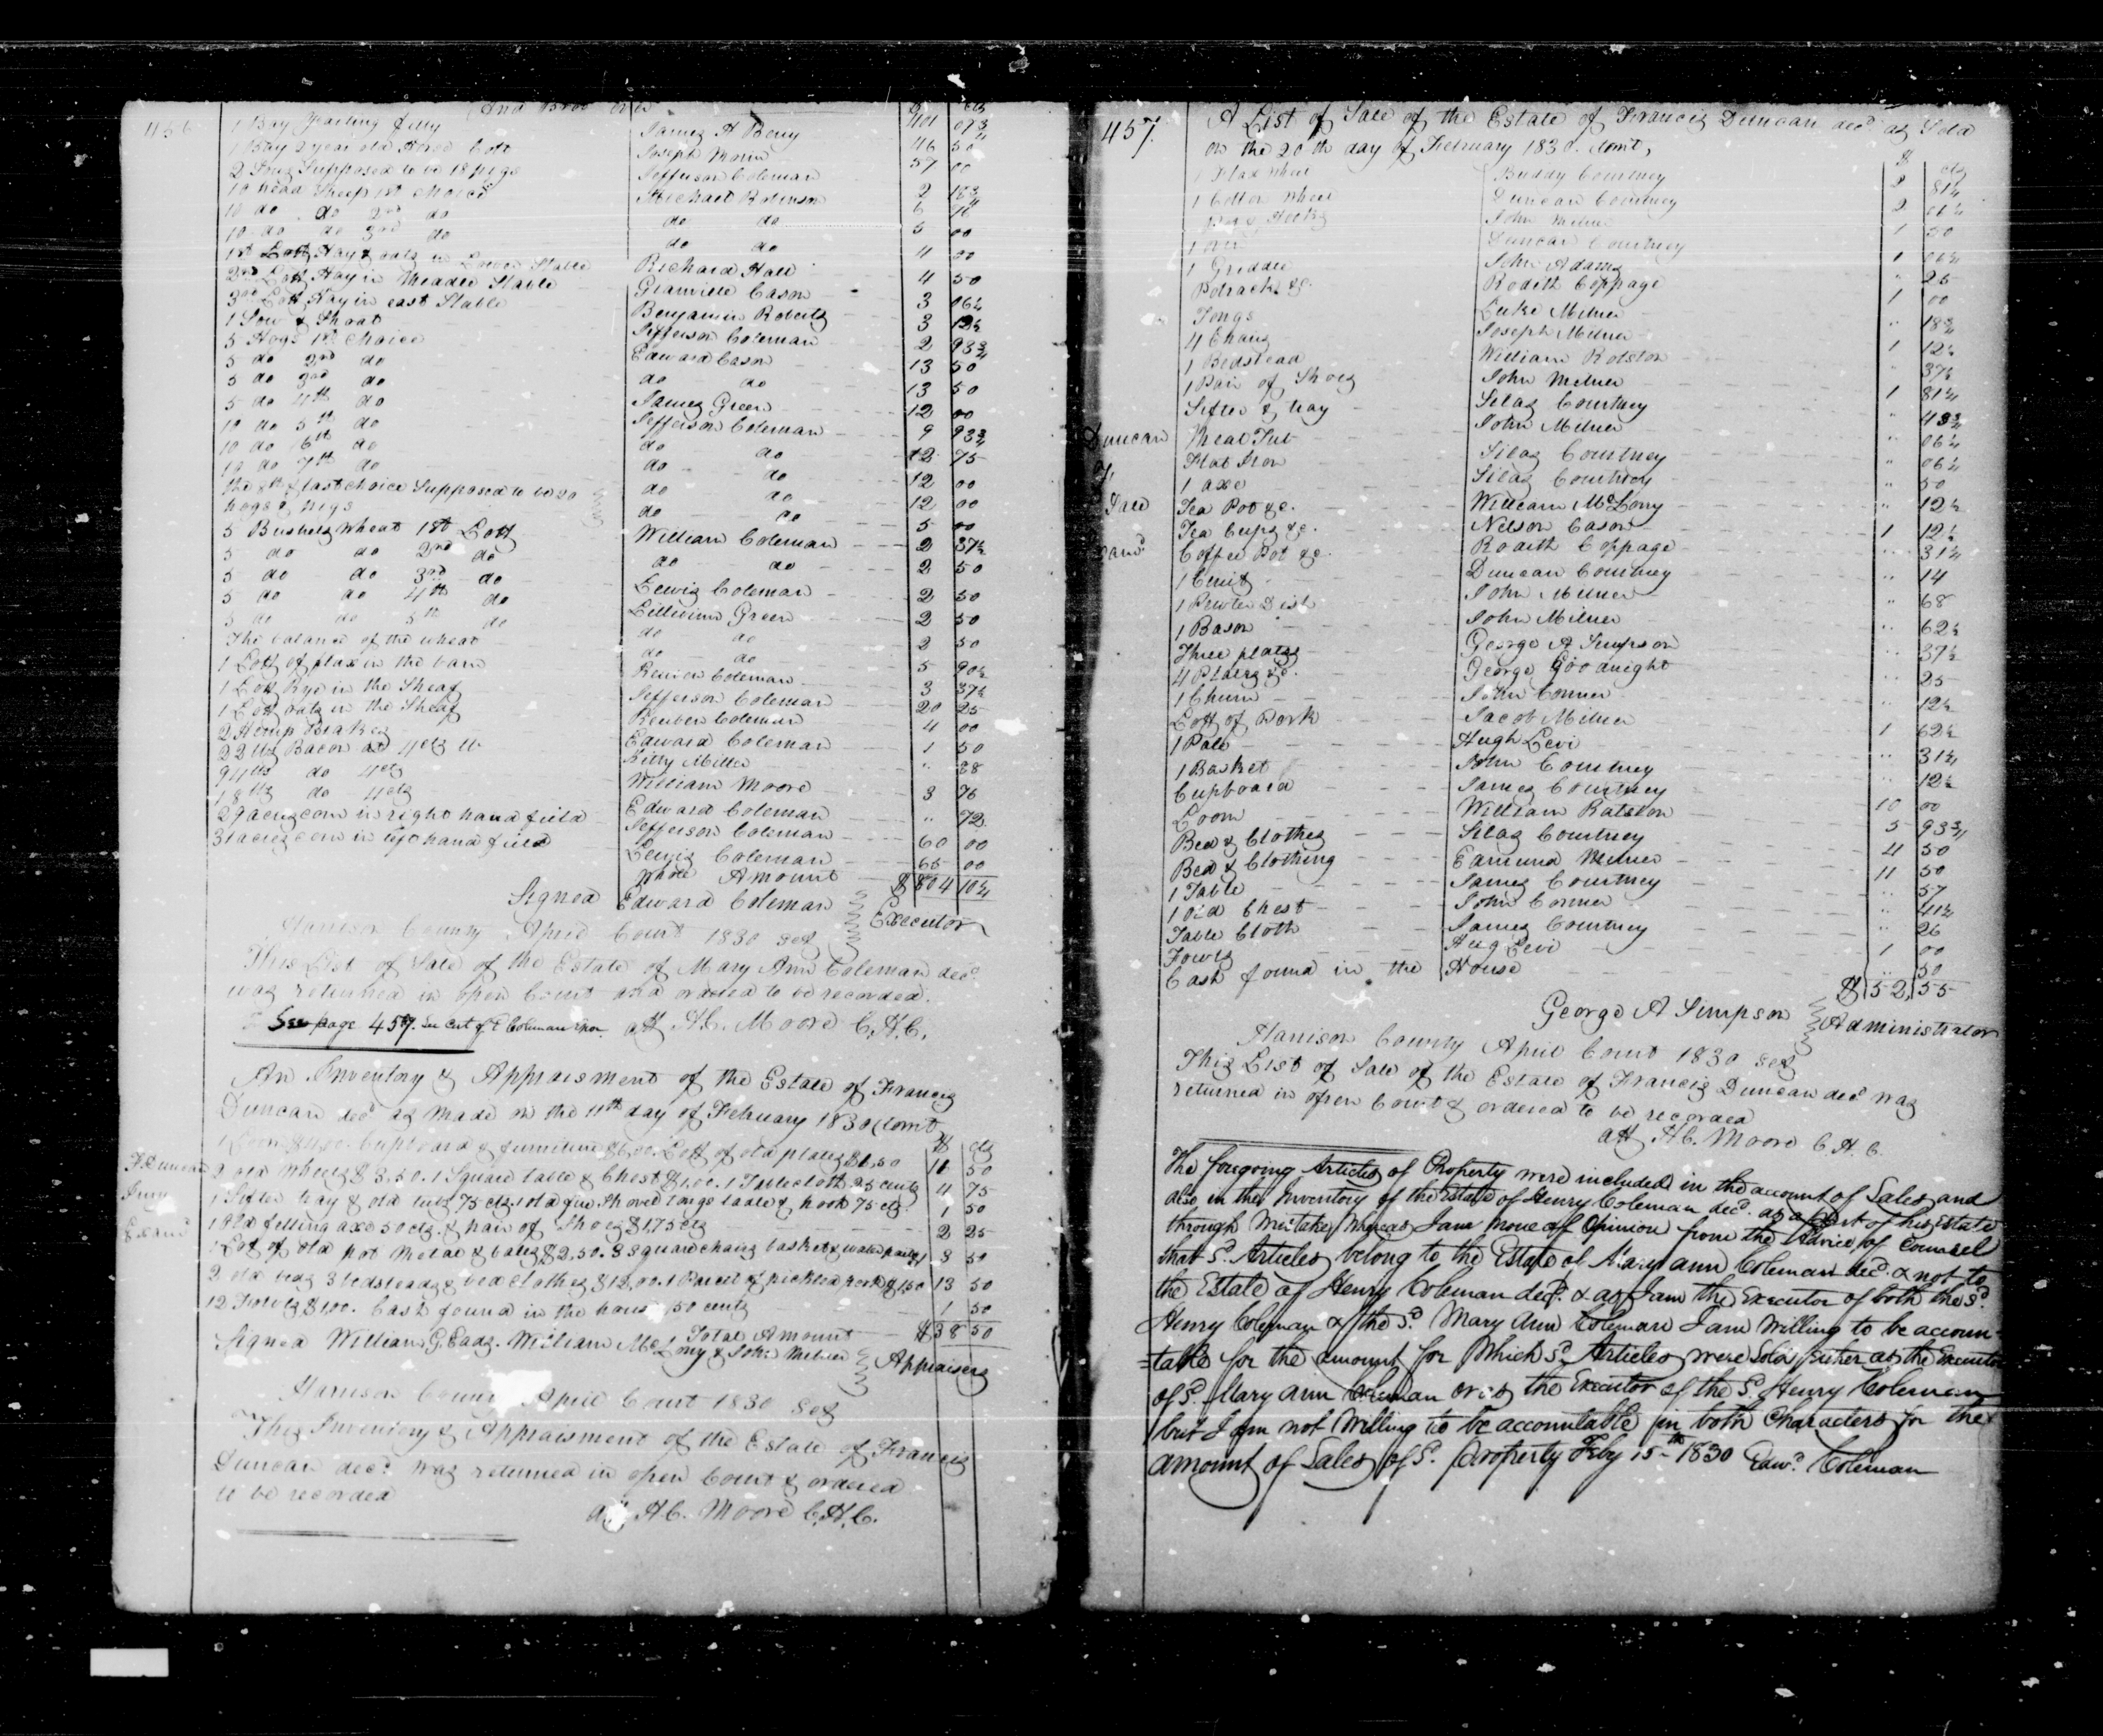 456
And Bro't over $ cts
401 07¾
1 Bay Yearling filly James H Berry 46 50
1 Bay 2 year old Horse Colt Joseph Morin 57 00
2 Sows Supposed to be 18 pigs Jefferson Coleman 2 18¾
10 head Sheep 1st choice Michael Robinson 6
10 do do 2nd do do do 5 00
10 do do 3rd do do do 4 00
1st Lott Hay & oats in Lower Stable Richard Hall 4 50
2nd Lott Hay in Meadle Stable Granville Cason 3 06¼
3rd Lott Hay in east Stable Benjamin Roberts 3 12½
1 Sow & Shoat Jefferson Coleman 2 93¾
5 Hogs 1st Choice Edward Cason 13 50
5 do 2nd do do do 13 50
5 do 3rd do James Green 12 00
5 do 4th do Jefferson Coleman 9 93¾
10 do 5th do do do 12 75
10 do 6th do do do 12 00
10 do 7th do do do 12 00
the 8th & last choice Supposed to be 20
hogs & pigs do do 5 00
5 Bushels Wheat 1st Lott William Coleman 2 37½
5 do do 2nd do do do 2 50
5 do do 3rd do Lewis Coleman 2 50
5 do do 4th do Green 2 50
5 do do 5th do do do 2 50
The balance of the wheat do do 5 90½
1 Lott of flax in the barn Reuben Coleman 3 37½
1 Lott Rye in the Sheaf Jefferson Coleman 20 25
1 Lott oats in the Sheaf Reuben Coleman 4 00
2 Hemp Brakes Edward Coleman 1 50
22 lbs Bacon at 4 cts lb Kitty Miller " 88
94 lbs do 4 cts William Moore 3 76
18 lbs do 4 cts Edward Coleman " 72
29 acres corn in right hand field Jefferson Coleman 60 00
31 acres corn in left hand field Lewis Coleman 65 00
Whole Amount $804 10¼
Signed Edward Coleman Executor
Harrison County April Court 1830 Sct
This List of Sale of the Estate of Mary Ann Coleman decd
was returned in open Court and ordered to be recorded.
See page 457. See Cert of E Coleman Exor. att H.C. Moore C.H.C.
An Inventory & Appraisment of the Estate of Francis
Duncan decd as made on the 11th day of February 1830 (towit)
$ cts
1 Loom $4.00. Cupboard & furniture $6.00. Lott of old plates $1.50 11 50
F. Duncan
2 old Wheels $3.50. 1 Square table & Chest $1.00. 1 Tablecloth 25 cents 4 75
Invy
1 Sifter tray & old tubs 75 cts. 1 old fire Shovel tongs ladle & hook 75 cts 1 50
Examd
1 Old felling axe 50 cts. & pair of Shoes $1.75 cts 2 25
1 Lot of old pot Metal & bales $2.50. 3 Square chairs basket & water pails $1 3 50
2 old beds 3 bedsteads & bed clothes $12.00. 1 Parcel of pickled pork $1.50 13 50
12 Fowls $1.00. Cash found in the house 50 cents 1 50
Total Amount $38 50
Signed William G. Eads. William McLorry & John Milner Appraisers
Harrison County April Court 1830 Sct
This Inventory & Appraisment of the Estate of Francis
Duncan decd was returned in open Court & ordered
to be recorded
att H.C. Moore C.H.C.
457.
A List of Sale of the Estate of Francis Duncan decd as Sold
on the 20th day of February 1830. towit,
$ cts
1 Flax Wheel Buddy Courtney 2 81¼
1 Cotton Wheel Duncan Courtney 2 06¼
Pot & Hooks John Milner 1 50
1 Oven Duncan Courtney 1 06¼
1 Griddle John Adams " 25
Potrack &c. Rodith Coppage 1 00
Tongs Luke Milner " 18¾
4 Chairs Joseph Milner 1 12½
1 Bedstead William Rolston " 37½
1 Pair of Shoes John Milner 1 81¼
Sifter & tray Silas Courtney " 43¾
Duncan
Meal Tub John Milner " 06¼
Flat Iron Silas Courtney " 06¼
1 axe Silas Courtney " 50
Sale
Tea Pot &c. William McLorry " 12½
Tea Cups &c. Nelson Cason 1 12½
Examd
Coffee Pot &c. Rodith Coppage " 31¼
1 Cruit Duncan Courtney " 14
1 Pewter Dish John Milner " 68
1 Bason John Milner " 62½
Three plates George A Simpson " 37½
4 Plates &c. George Goodnight " 25
1 Churn John Conner " 12½
Lott of Pork Jacob Milner 1 62½
1 Pale Hugh Levi " 31¼
1 Basket John Courtney " 12½
Cupboard James Courtney 10 00
Loom William Ralston 5 93¾
Bed & Clothes Silas Courtney 4 50
Bed & Clothing Edmund Milner 11 50
1 Table James Courtney " 57
1 old Chest John Conner " 41¼
Table Cloth James Courtney " 26
Fowls Hug Levi 1 00
Cash found in the House " 50
$52,55
George A Simpson Administrator
Harrison County April Court 1830 Sct
This List of Sale of the Estate of Francis Duncan decd was
returned in open Court & ordered to be recorded
att H.C. Moore C.H.C.
The foregoing Articles of Property were included in the account of Sales and
also in the Inventory of the Estate of Henry Coleman decd. as a part of his Estate
through Mistake, Whereas I am now of Opinion from the Advice of Counsel
that Sd. Articles belong to the Estate of Mary ann Coleman decd. & not to
the Estate of Henry Coleman decd. & as I am the Executor of both the Sd.
Henry Coleman & the Sd. Mary Ann Coleman I am Willing to be accoun-
=table for the amount for Which Sd. Articles were Sold either as the Executor
of Sd. Mary ann Coleman or as the Executor of the Sd. Henry Coleman
but I am not Willing to be accountable in both Characters for the
amount of Sales of Sd. Property Feby 15th 1830 Edwd. Coleman